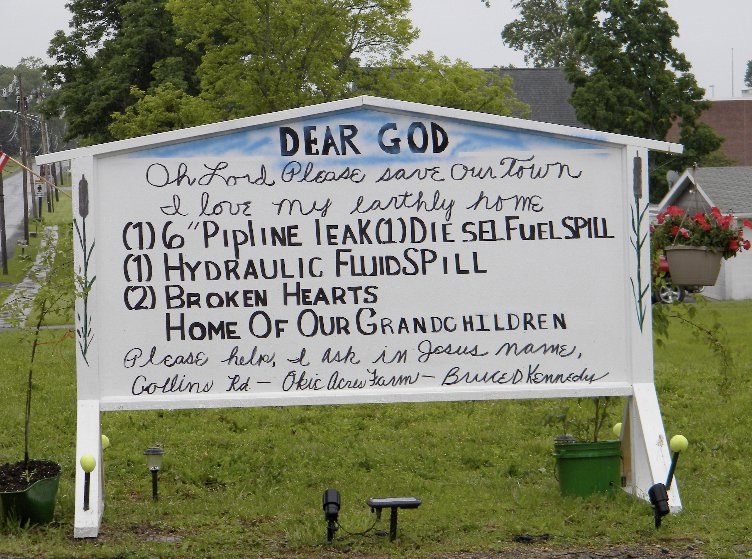 DEAR GOD
Oh Lord Please save our Town
I love my earthly home
(1) 6" PIplINE lEAK(1)DIESELFUELSPILL
(1) HYDRAULIC FLUIDSPILL
(2) BROKEN HEARTS
HOME OF OUR GRANDCHILDREN
Please help, I ask in Jesus name,
Collins Rd - Okie Acres Farm - Bruce D Kennedy